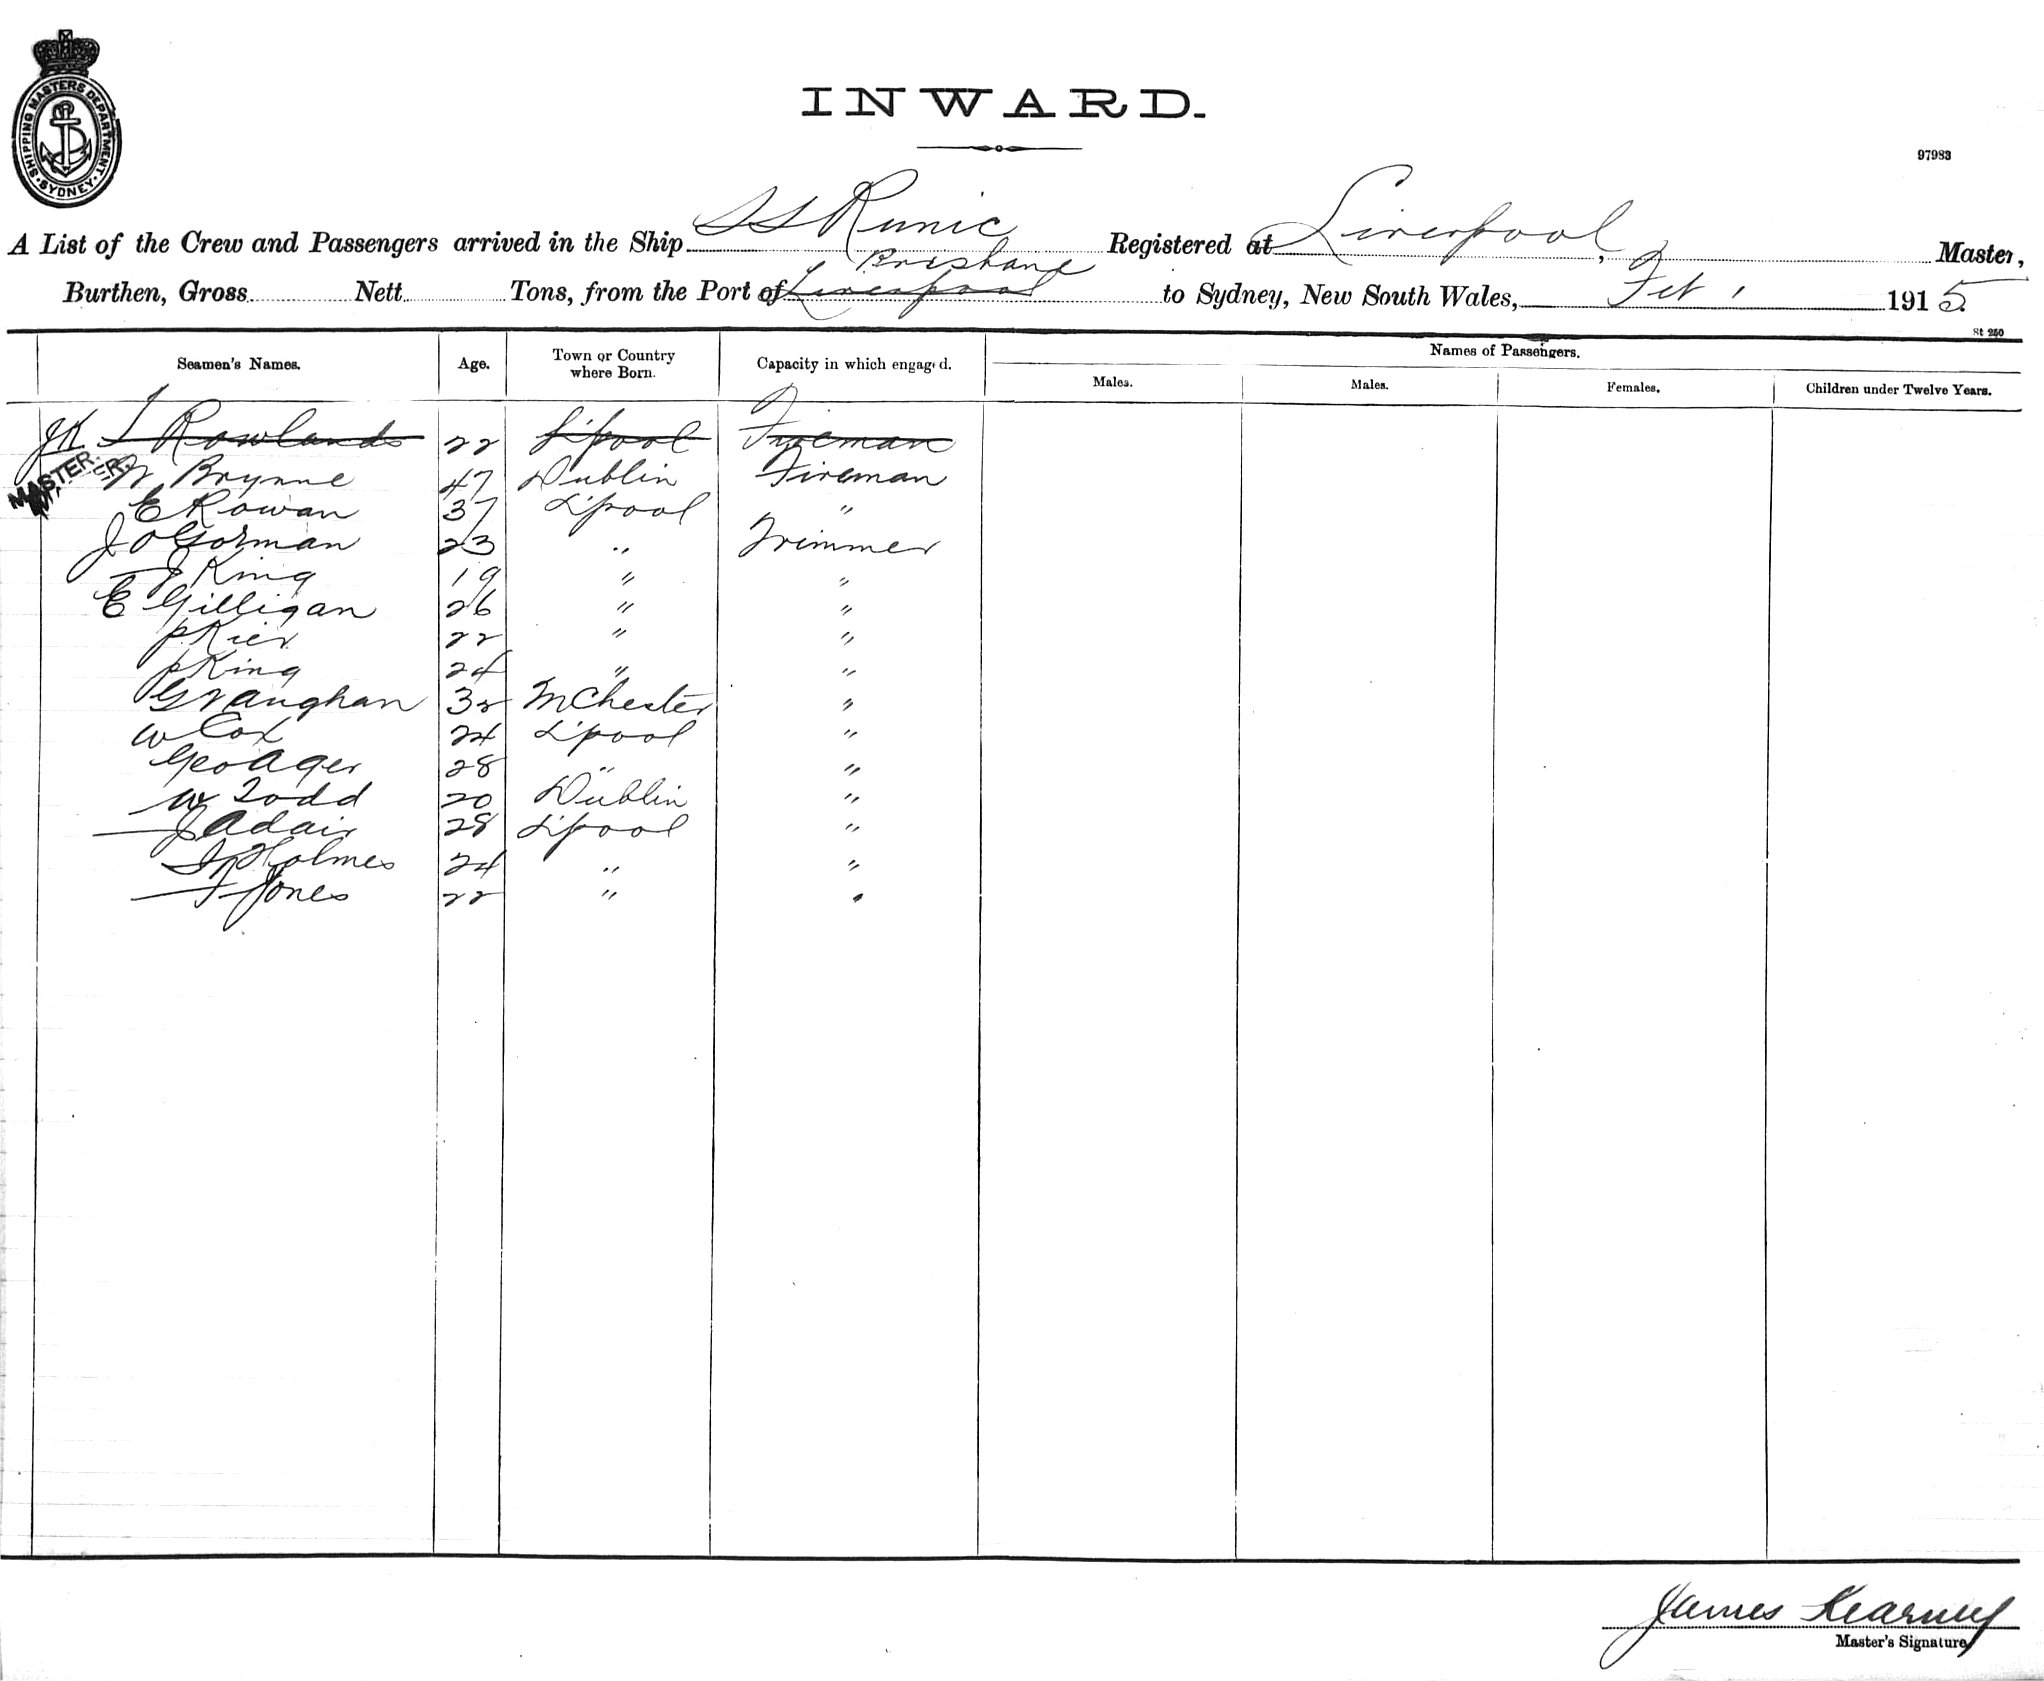 SHIPPING MASTERS DEPARTMENT. SYDNEY.
INWARD.
97983
A List of the Crew and Passengers arrived in the Ship SS Runic Registered at Liverpool, Master,
Brisbane
Burthen, Gross Nett Tons, from the Port of Liverpool to Sydney, New South Wales, Feb 1 1915
St 250
Seamen's Names. Age. Town or Country where Born. Capacity in which engaged. Names of Passengers.
Males. Males. Females. Children under Twelve Years.
JK T Rowlands 22 L'pool Fireman
MASTER. W Brynne 47 Dublin Fireman
E Rowan 37 L'pool "
J O Gorman 23 " Trimmer
J King 19 " "
E Gilligan 26 " "
P Kier 22 " "
P King 24 " "
G Vaughan 32 MChester "
W Cox 24 L'pool "
Geo Ager 28 " "
W Todd 20 Dublin "
J Adair 28 L'pool "
Holmes 24 " "
T Jones 22 " "
James Kearney
Master's Signature